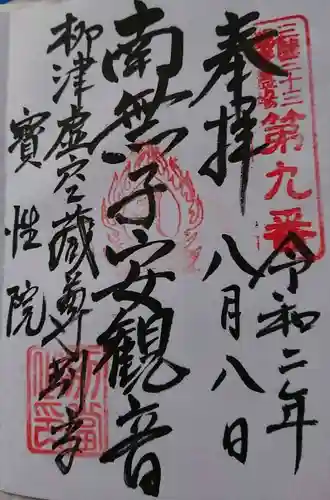 第九番
奉拝
令和二年
八月八日
南無子安観音
柳津虚空蔵尊別当
寳性院